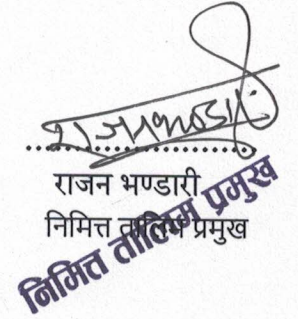 राजन भण्डारी
राजन भण्डारी
निमित्त तालिम प्रमुख
निमित्त तालिम प्रमुख